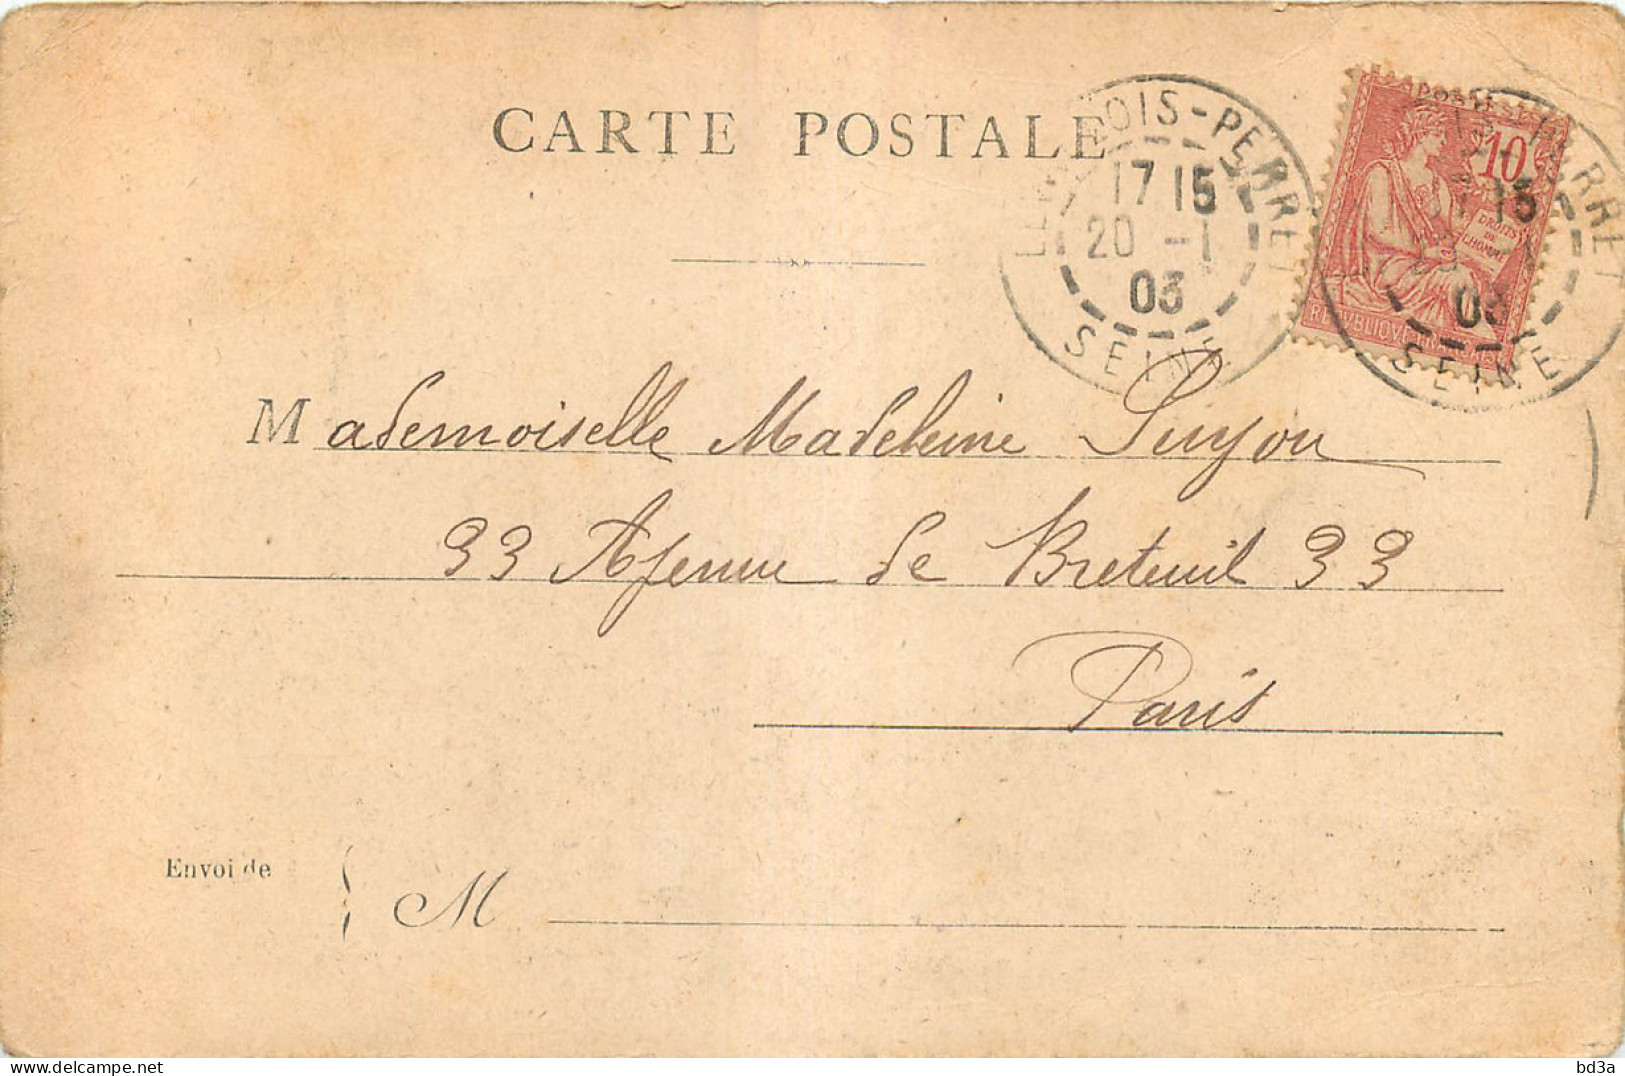 CARTE POSTALE
LEVALLOIS-PERRET
17 15
20 -1
03
SEINE
POSTES
10
DROITS
DE
L'HOMME
REPVBLIQVE FRANÇAISE
PERRET
15
03
SEINE
Mademoiselle Madeleine
33 Avenue de Breteuil 33
Paris
Envoi de
M
bd3a